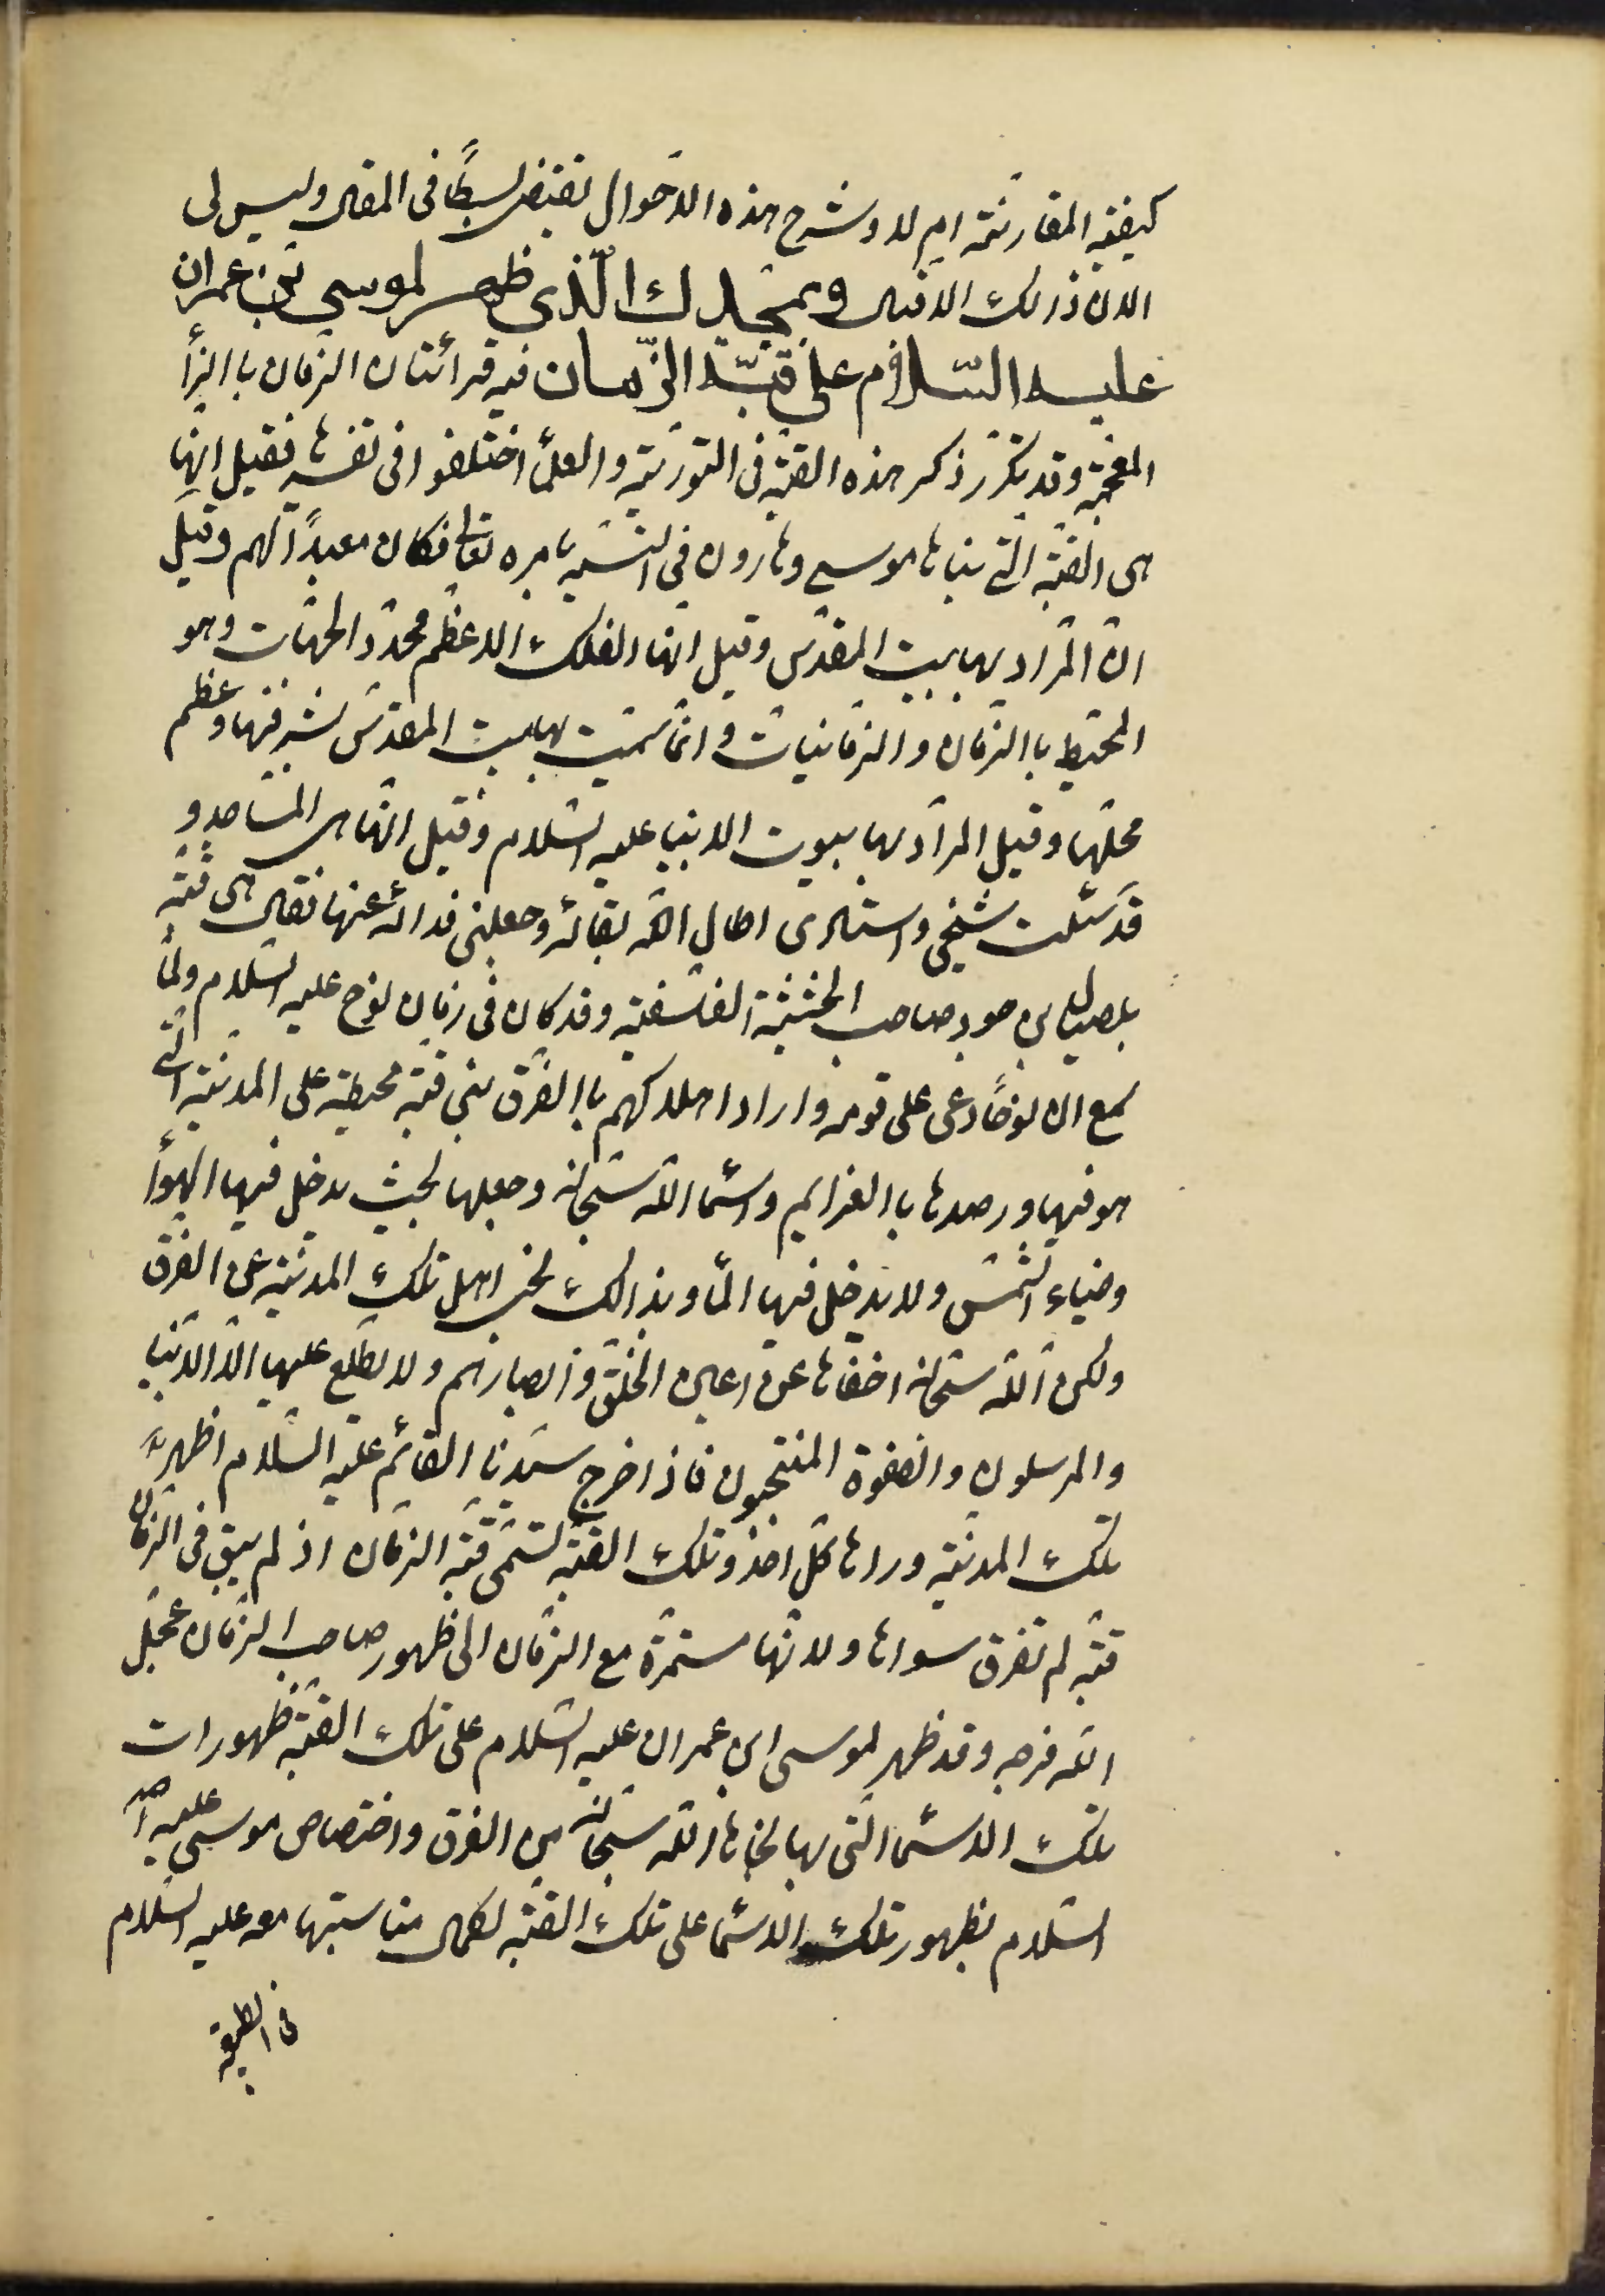 كيفية المقارنة ام لا و شرح هذه الاحوال يقتضى بسطًا فى المقال وليس لى
الان ذلك الاقبال وبمجدك الّذى ظهر لموسى بن عمران
عليه السّلام على قبّة الزّمان فيه قرائتان الزمان باالزاء
المعجمة وقد تكرّر ذكر هذه القبّة فى التورية والعلمآ اختلفوا فى تفسيرها فقيل انها
هى القبّة الّتى بناها موسى وهارون فى التيه بامره تعالى فكان معبدًا لهم وقيل
ان المراد بها بيت المقدس وقيل انها الفلك الاعظم محدّد الجهات وهو
المحيط باالزمان والزمانيات وانّما سمّيت بها بيت المقدس لشرفها وعظم
محلّها وقيل المراد بها بيوت الانبيا عليه السّلام وقيل انّها هى المساجد و
قد سئلت شيخى واستادى اطال الله بقائه وجعلنى فدائه عنها فقال هى قبّة
بن حور صاحب الفلسفية وقد كان فى زمان نوح عليه السّلام ولمّا
سمع ان نوحًا دعى على قومه واراد اهلاكهم باالغرق بنى قبّة محيطة على المدينة الّتى
هو فيها ورصدها باالعزايم واسمآ الله سبحانه وجعلها بحيث يدخل فيها الهوآ
وضياء الشمس ولا يدخل فيها المآ وبذالك نجى اهل تلك المدينة عن الغرق
ولكن الله سبحانه اخفاها عن اعين الخلق وابصارهم ولا يطّلع عليها الّا الانبيا
والمرسلون والصفوة المنتجبون فاذا خرج سيّدنا القائم عليه السّلام اظهر الله
تلك المدينة وراها كلّ احد وتلك القبّة تسمّى قبّة الزمان اذ لم يبق فى الزمان
قبّة لم تغرق سواها ولانّها مستمرّة مع الزمان الى ظهور صاحب الزمان عجّل
الله فرجه وقد ظهر لموسى ابن عمران عليه السّلام على تلك القبّة ظهورات
تلك الاسمآ الّتى بها نجاها الله سبحانه من الغرق واختصاص موسى عليه
السّلام بظهور تلك الاسمآ على تلك القبّة لكمال مناسبتها معه عليه السّلام
فى الطبيعة